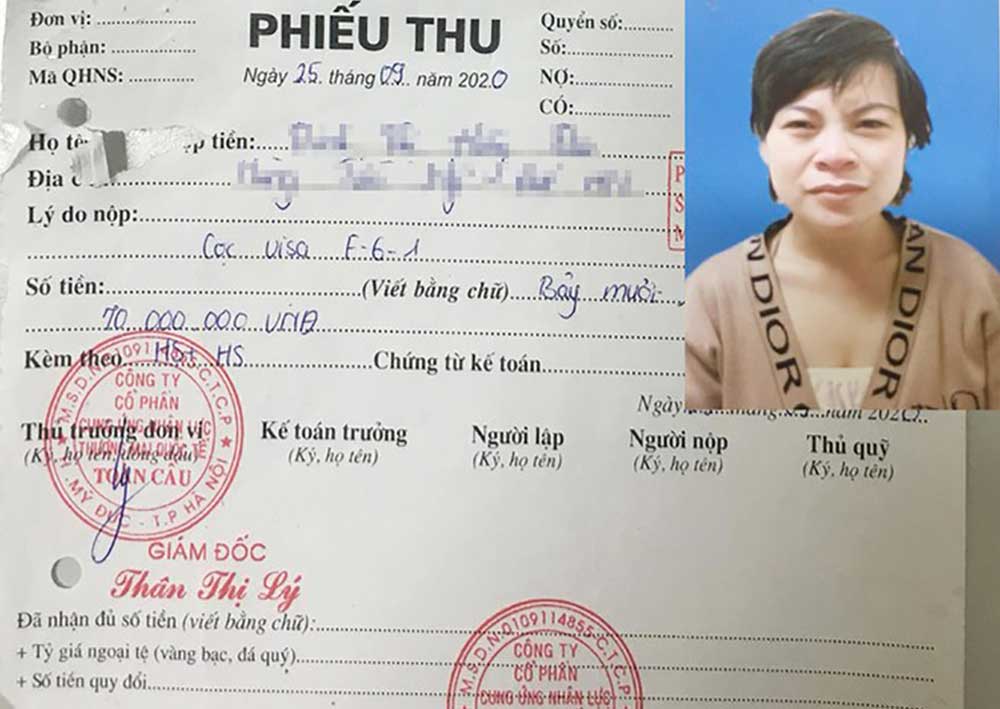 Đơn vị:
Bộ phận:
Mã QHNS:
PHIẾU THU
Ngày 25 tháng 09 năm 2020
Quyển số:
Số:
NỢ:
CÓ:
Họ tê tiền:
Địa
Lý do nộp:
Cọc visa F-6-1
Số tiền: (Viết bằng chữ) Bảy mươi
70.000.000 VNĐ
Kèm theo HS+ HS Chứng từ kế toán
Ngày năm 2020
Thủ trưởng đơn vị
(Ký, họ tên, đóng dấu)
Kế toán trưởng
(Ký, họ tên)
Người lập
(Ký, họ tên)
Người nộp
(Ký, họ tên)
Thủ quỹ
(Ký, họ tên)
CÔNG TY
CỔ PHẦN
CUNG ỨNG NHÂN LỰC
THƯƠNG MẠI QUỐC TẾ
TOÀN CẦU
H. MỸ ĐỨC - T.P HÀ NỘI
GIÁM ĐỐC
Thân Thị Lý
Đã nhận đủ số tiền (viết bằng chữ):
+ Tỷ giá ngoại tệ (vàng bạc, đá quý)
+ Số tiền quy đổi
M.S.D.N:0109114855.C.T.C.P
CÔNG TY
CỔ PHẦN
CUNG ỨNG NHÂN LỰC
DIOR
AN DIOR